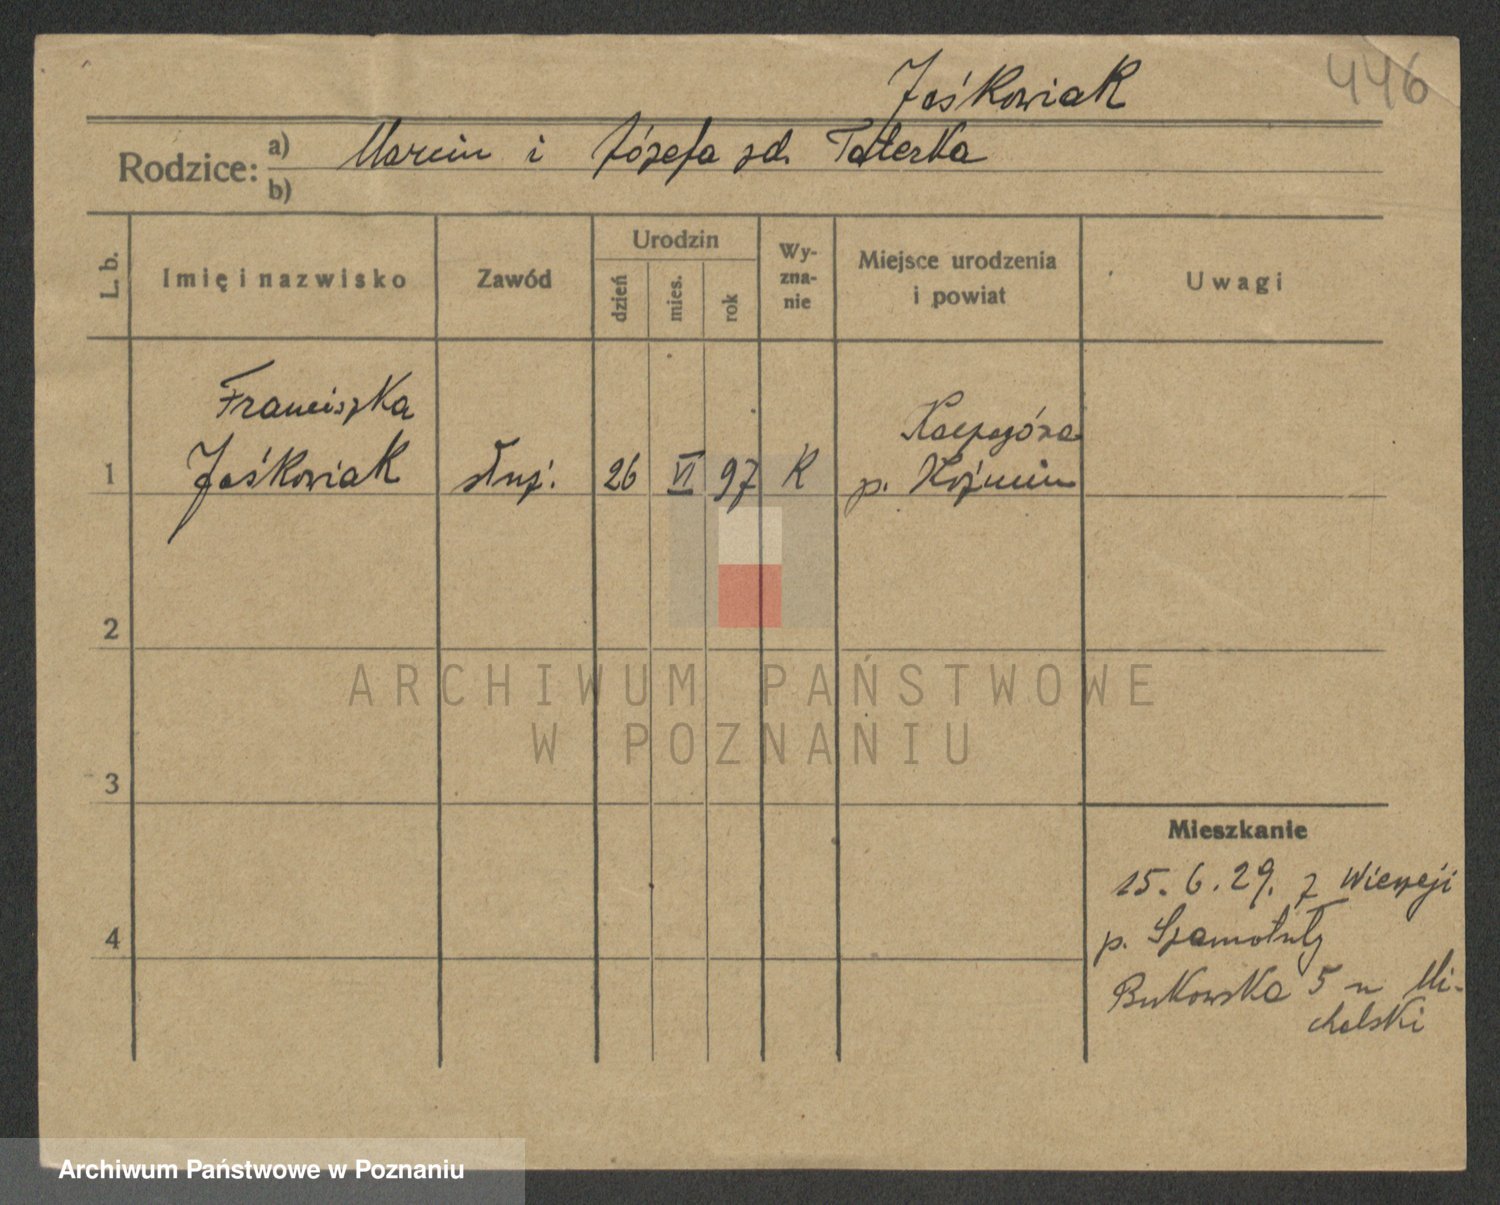 446
Jaśkowiak
Rodzice: a) Marcin i Józefa zd. Taterka
b)
L. b.
Imię i nazwisko
Zawód
Urodzin
dzień
mies.
rok
Wy-
zna-
nie
Miejsce urodzenia
i powiat
Uwagi
Franciszka
1 Jaśkowiak służ. 26 VI 97 K
p. Koźmin
2
3
4
Mieszkanie
15. 6. 29. z
p. Szamotuły
Bukowska 5 u Mi-
chalski
ARCHIWUM PAŃSTWOWE
W POZNANIU
Archiwum Państwowe w Poznaniu